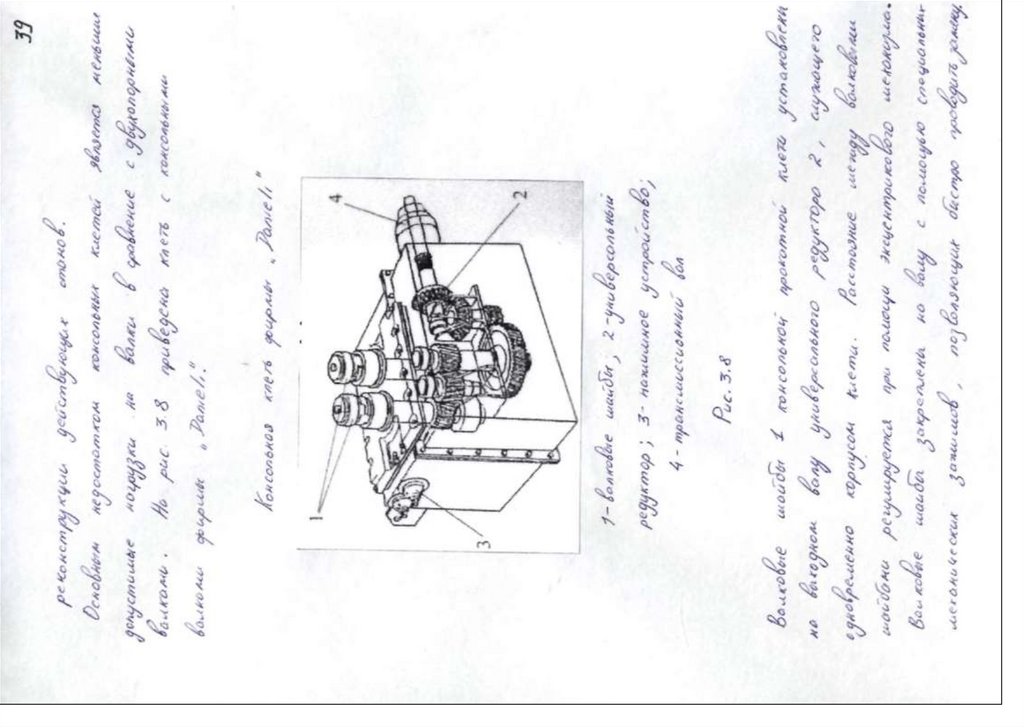 39
реконструкции действующих станов.
Основным недостатком консольных клетей является меньшие
допустимые нагрузки на валки в сравнение с двухопорными
валками. На рис 3.8 приведена клеть с консольными
валками фирмы „Danieli“
Консольная клеть фирмы „Danieli“
1
2
3
4
1-валковые шайбы; 2-универсальный
редуктор; 3-нажимное устройство;
4-трансмиссионный вал
Рис. 3.8
Валковые шайбы 1 консольной прокатной клети установлены
на выходном валу универсального редуктора 2, служащего
одновременно корпусом клети. Расстояние между валковыми
шайбами регулируется при помощи эксцентрикового механизма.
Валковые шайбы закреплены на валу с помощью специальных
механических зажимов, позволяющих быстро проводить замену.